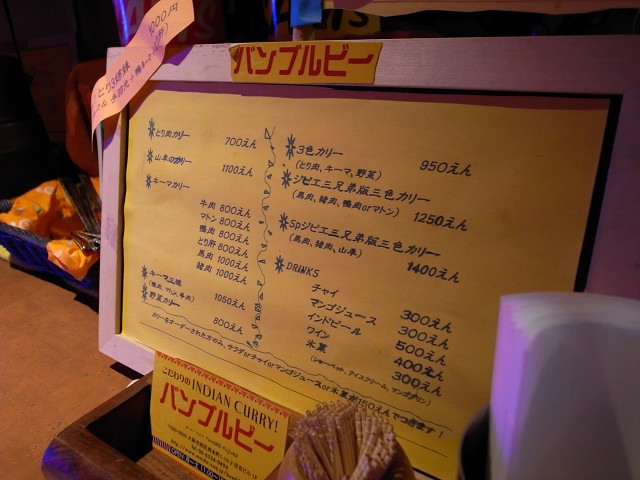 バンブルビー
1000円
とり3姉妹
とり肉カリー 700えん
山羊のカリー 1100えん
キーマカリー
牛肉 800えん
マトン 800えん
鴨肉 800えん
とり肝 800えん
馬肉 1000えん
猪肉 1000えん
キーマ三昧 1050えん
野菜カリー 800えん
3色カリー 950えん
(とり肉、キーマ、野菜)
ジビエ三兄弟版三色カリー 1250えん
(馬肉、猪肉、鴨肉orマトン)
Spジビエ三兄弟版三色カリー 1400えん
(馬肉、猪肉、山羊)
DRINKS
チャイ 300えん
マンゴジュース 300えん
インドビール 500えん
ワイン 400えん
氷菓 300えん
(シャーベット、アイスクリーム、マンゴプリン)
カリーをオーダーされた方のみ、サラダorチャイorマンゴジュースor氷菓が150えんでつきます!
こだわりのINDIAN CURRY!
バンブルビー